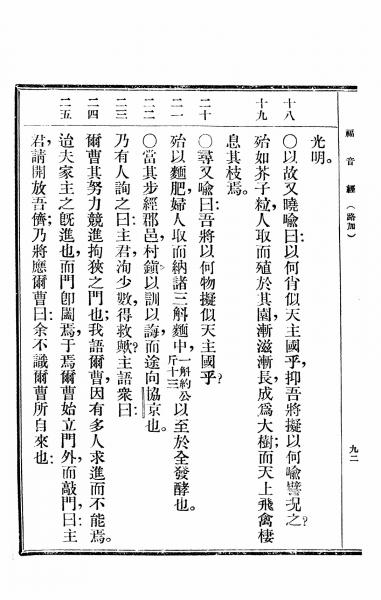 福音經（路加） 九二
光明。
十八 〇以故又曉喩曰:以何肖似天主國乎,抑吾將擬以何喩譬況之?
十九 殆如芥子粒,人取而殖於其園,漸滋漸長,成爲大樹;而天上飛禽棲
息其枝焉。
二十 〇尋又喩曰:吾將以何物擬似天主國乎?
二一 殆以麵肥,婦人取而納諸三斛麵中,一斛約公斤十三以至於全發酵也。
二二 〇當其步經郡邑,村鎭以訓以誨,而途向協京也。
二三 乃有人詢之曰:主君,洵少數得救歟?主語衆曰:
二四 爾曹其努力競進拘狹之門也;我語爾曹,因有多人求進而不能焉。
二五 迨夫家主之旣進也,而門卽闔焉,于焉爾曹始立門外,而敲門,曰:主
君,請開放吾儕;乃將應爾曹曰:余不識爾曹所自來也: